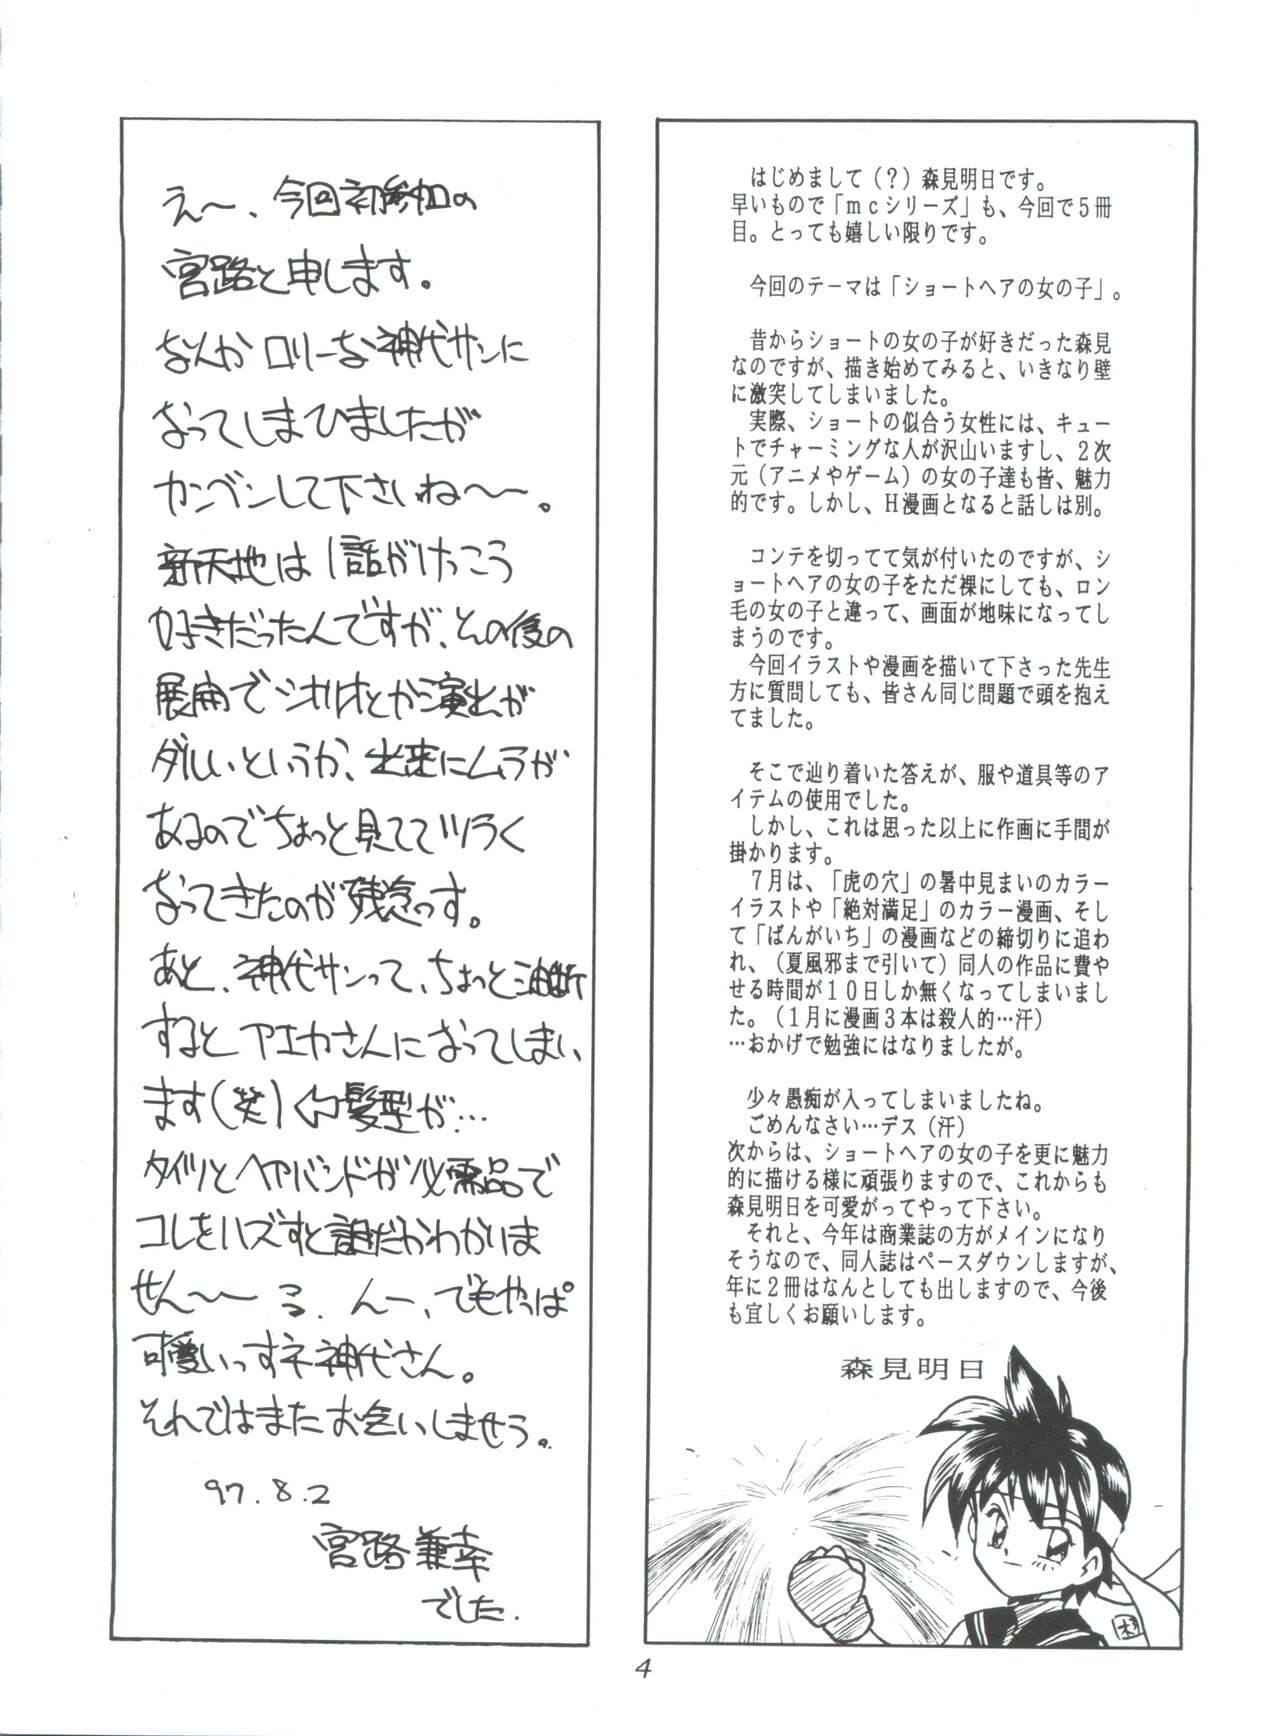 はじめまして（？）森見明日です。
早いもので「ｍｃシリーズ」も、今回で５冊
目。とっても嬉しい限りです。
今回のテーマは「ショートヘアの女の子」。
昔からショートの女の子が好きだった森見
なのですが、描き始めてみると、いきなり壁
に激突してしまいました。
実際、ショートの似合う女性には、キュー
トでチャーミングな人が沢山いますし、２次
元（アニメやゲーム）の女の子達も皆、魅力
的です。しかし、Ｈ漫画となると話しは別。
コンテを切ってて気が付いたのですが、シ
ョートヘアの女の子をただ裸にしても、ロン
毛の女の子と違って、画面が地味になってし
まうのです。
今回イラストや漫画を描いて下さった先生
方に質問しても、皆さん同じ問題で頭を抱え
てました。
そこで辿り着いた答えが、服や道具等のア
イテムの使用でした。
しかし、これは思った以上に作画に手間が
掛かります。
７月は、「虎の穴」の暑中見まいのカラー
イラストや「絶対満足」のカラー漫画、そし
て「ばんがいち」の漫画などの締切りに追わ
れ、（夏風邪まで引いて）同人の作品に費や
せる時間が１０日しか無くなってしまいまし
た。（１月に漫画３本は殺人的…汗）
…おかげで勉強にはなりましたが。
少々愚痴が入ってしまいましたね。
ごめんなさい…デス（汗）
次からは、ショートヘアの女の子を更に魅力
的に描ける様に頑張りますので、これからも
森見明日を可愛がってやって下さい。
それと、今年は商業誌の方がメインになり
そうなので、同人誌はペースダウンしますが、
年に２冊はなんとしても出しますので、今後
も宜しくお願いします。
森見明日
え〜、今回初参加の
宮路と申します。
なんかロリーな神代サンに
なってしまひましたが
カンベンして下さいね〜ー。
新天地は1話がけっこう
好きだったんですが、その後の
展開でシオリとか演出が
ダルいというか、出来にムラが
あるのでちょっと見ててツラく
なってきたのが残念っす。
あと、神代サンって、ちょっと油断
するとアエカさんになってしまい
ます(笑)⇦髪型が…
タイツとヘアバンドが必需品で
コレをハズすと誰だかわかりま
せん〜ー んー、でもやっぱ
可愛いっすネ神代さん。
それではまたお会いしませう。
97.8.2
宮路兼幸
でした.
4